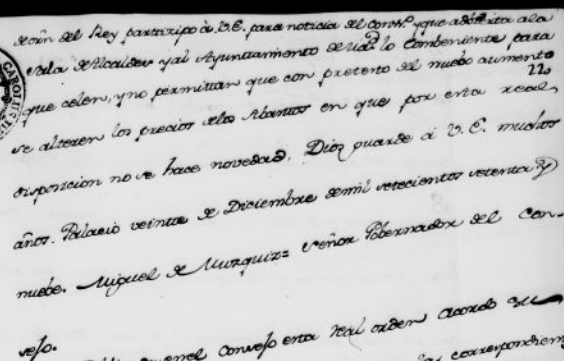 de orn del Rey participo à V.E. para noticia del Consº y que advierta ala
sala de Alcaldes y al Ayuntamiento de Madd lo Combeniente para
que celen, y no permitan que con pretexto del nuebo aumento
22
se alteren los precios de los Abastos en que por esta real
disposicion no se hace novedad. Dios guarde à V. E. muchos
años. Palacio veinte de Diciembre de mil setecientos setenta y
nuebe. Miguel de Muzquiz = Señor Gobernador del Con-
sejo.
en el Consejo esta real orden acordó su
las correspondien
CAROL